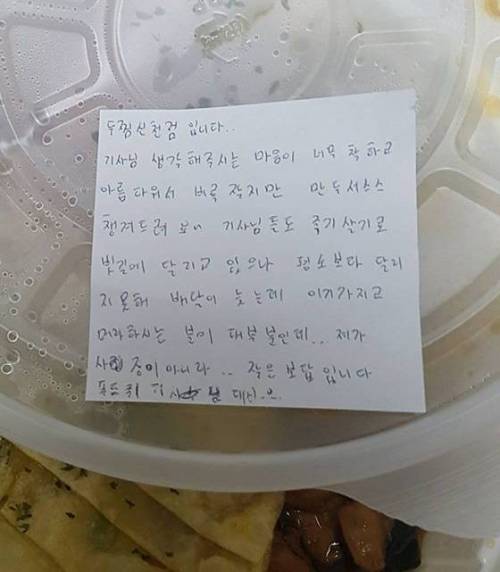 두찜신천점 입니다..
기사님 생각해주시는 마음이 너무 착하고
아름다워서 비록 작지만 만두서비스
챙겨드려 보아 기사님들도 죽기살기로
빗길에 달리고 있으나 평소보다 달리
지 못해 배달이 늦는데 이거가지고
머라하시는 분이 대부분인데.. 제가
사장이아니라.. 작은 보답 입니다